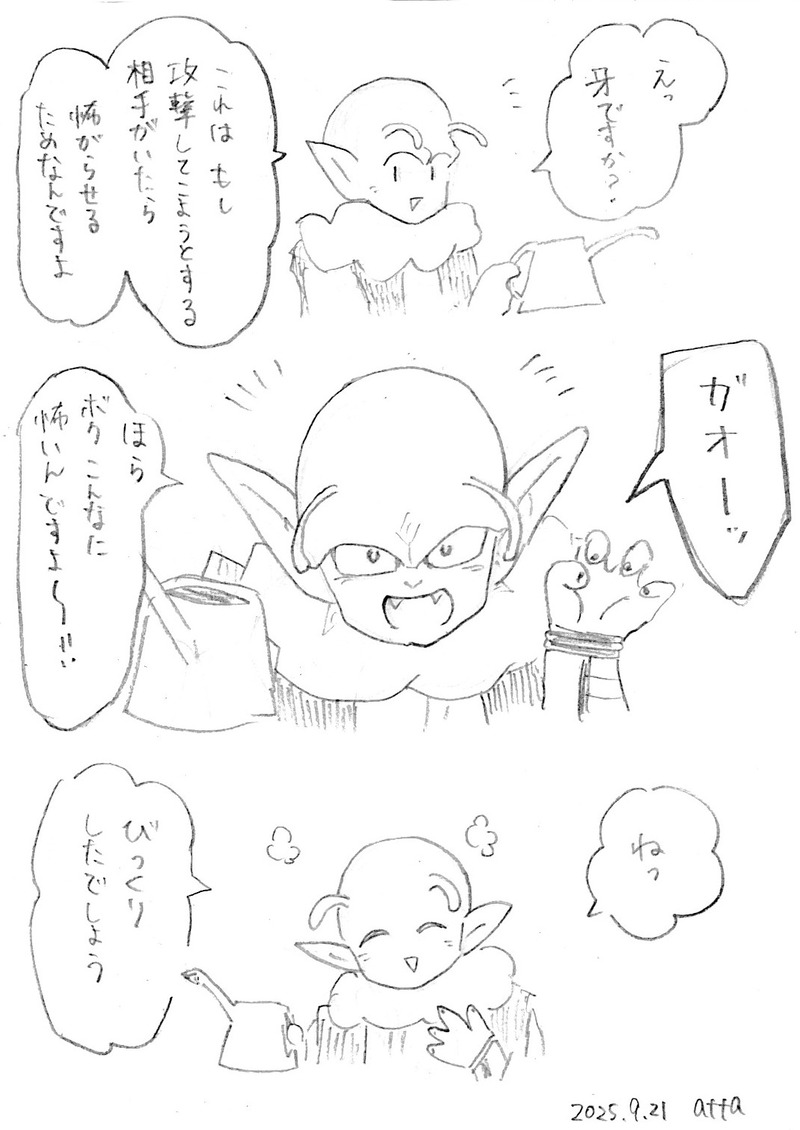 えっ
牙ですか?
これは もし
攻撃してこようとする
相手がいたら
怖がらせる
ためなんですよ
ガオーッ
ほら
ボク こんなに
怖いんですよ〜!!
ねっ
びっくり
したでしょう
2025.9.21 atta